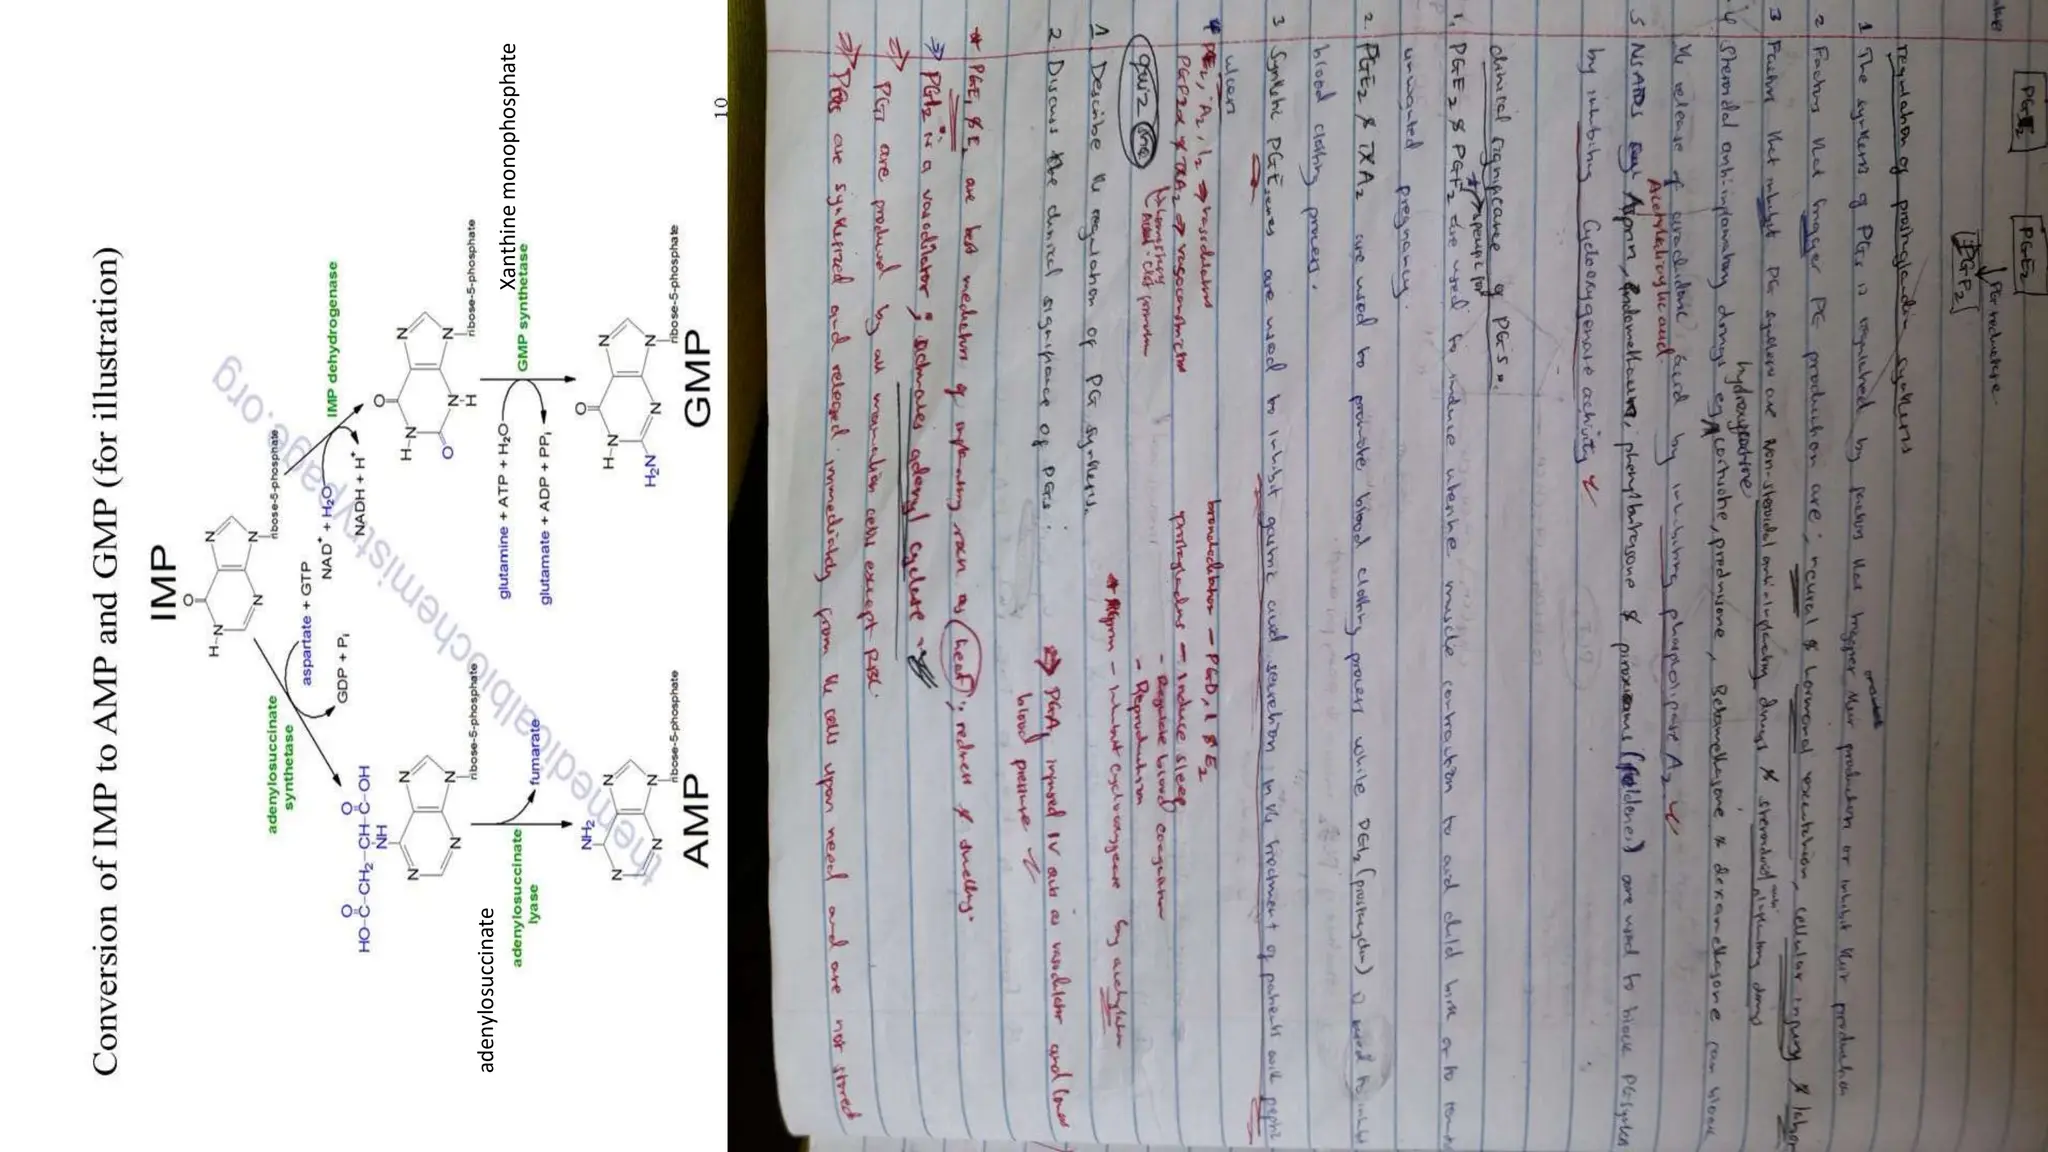 Conversion of IMP to AMP and GMP (for illustration)
IMP
O
H-N
N
N
N
ribose-5-phosphate
adenylosuccinate
synthetase
aspartate + GTP
GDP + Pi
IMP dehydrogenase
NAD+ + H2O
NADH + H+
HO-C-CH2-CH-C-OH
O
O
NH
N
N
N
N
ribose-5-phosphate
O
H-N
O
N-H
N
N
ribose-5-phosphate
adenylosuccinate
Xanthine monophosphate
adenylosuccinate
lyase
fumarate
glutamine + ATP + H2O
glutamate + ADP + PPi
GMP synthetase
NH2
N
N
N
N
ribose-5-phosphate
AMP
O
H-N
H2N
N
N
N
ribose-5-phosphate
GMP
themedicalbiochemistrypage.org
10
PGE2
PG reductase
regulation of prostaglandin synthesis
1 The synthesis of PGs is regulated by factors that trigger their production or inhibit their production
2 Factors that trigger PG production are; neural & hormonal excitation, cellular injury & labor
3 Factors that inhibit PG synthesis are non-steroidal anti-inflammatory drugs & steroidal anti inflammatory drugs
4 Steroidal anti-inflammatory drugs eg hydrocortisone, prednisone, Betamethasone & dexamethasone can block
the release of arachidonic acid by inhibiting phospholipase A2
Acetylsalicylic acid
5 NSAIDs eg Aspirin, indomethacin, phenylbutazone & piroxicams (feldene) are used to block PG synthesis
by inhibiting Cyclooxygenase activity
clinical significance of PGs.
1. PGE2 & PGF2 are used to induce uterine muscle contraction to aid child birth or to
unwanted pregnancy.
2. PGE2 & TXA2 are used to promote blood clotting process while PGI2 (prostacyclin) is used to inhibit
blood clotting process.
3 Synthetic PGE are used to inhibit gastric acid secretion in the treatment of patients with peptic
ulcers
A2, I2 → vasodilators
bronchodilation - PGD, I & E2
PGF2α & TXA2 → vasoconstrictor
prostaglandins - Induce sleep
- Regulate blood coagulation
- Reproduction
Quiz
1. Describe the regulation of PG synthesis.
* Aspirin - inhibit cyclooxygenase by acetylation
2. Discuss the clinical significance of PGs.
⇒ PGA, infused IV acts as vasodilator and lower
blood pressure
* PGE, & E2 are best mediators of inflammatory such as heat; redness & swelling.
⇒ PGI2 is a vasodilator; activates adenyl cyclase
⇒ PGs are produced by all mammalian cells except RBC.
⇒ PGs are synthesized and released immediately from the cells upon need and are not stored